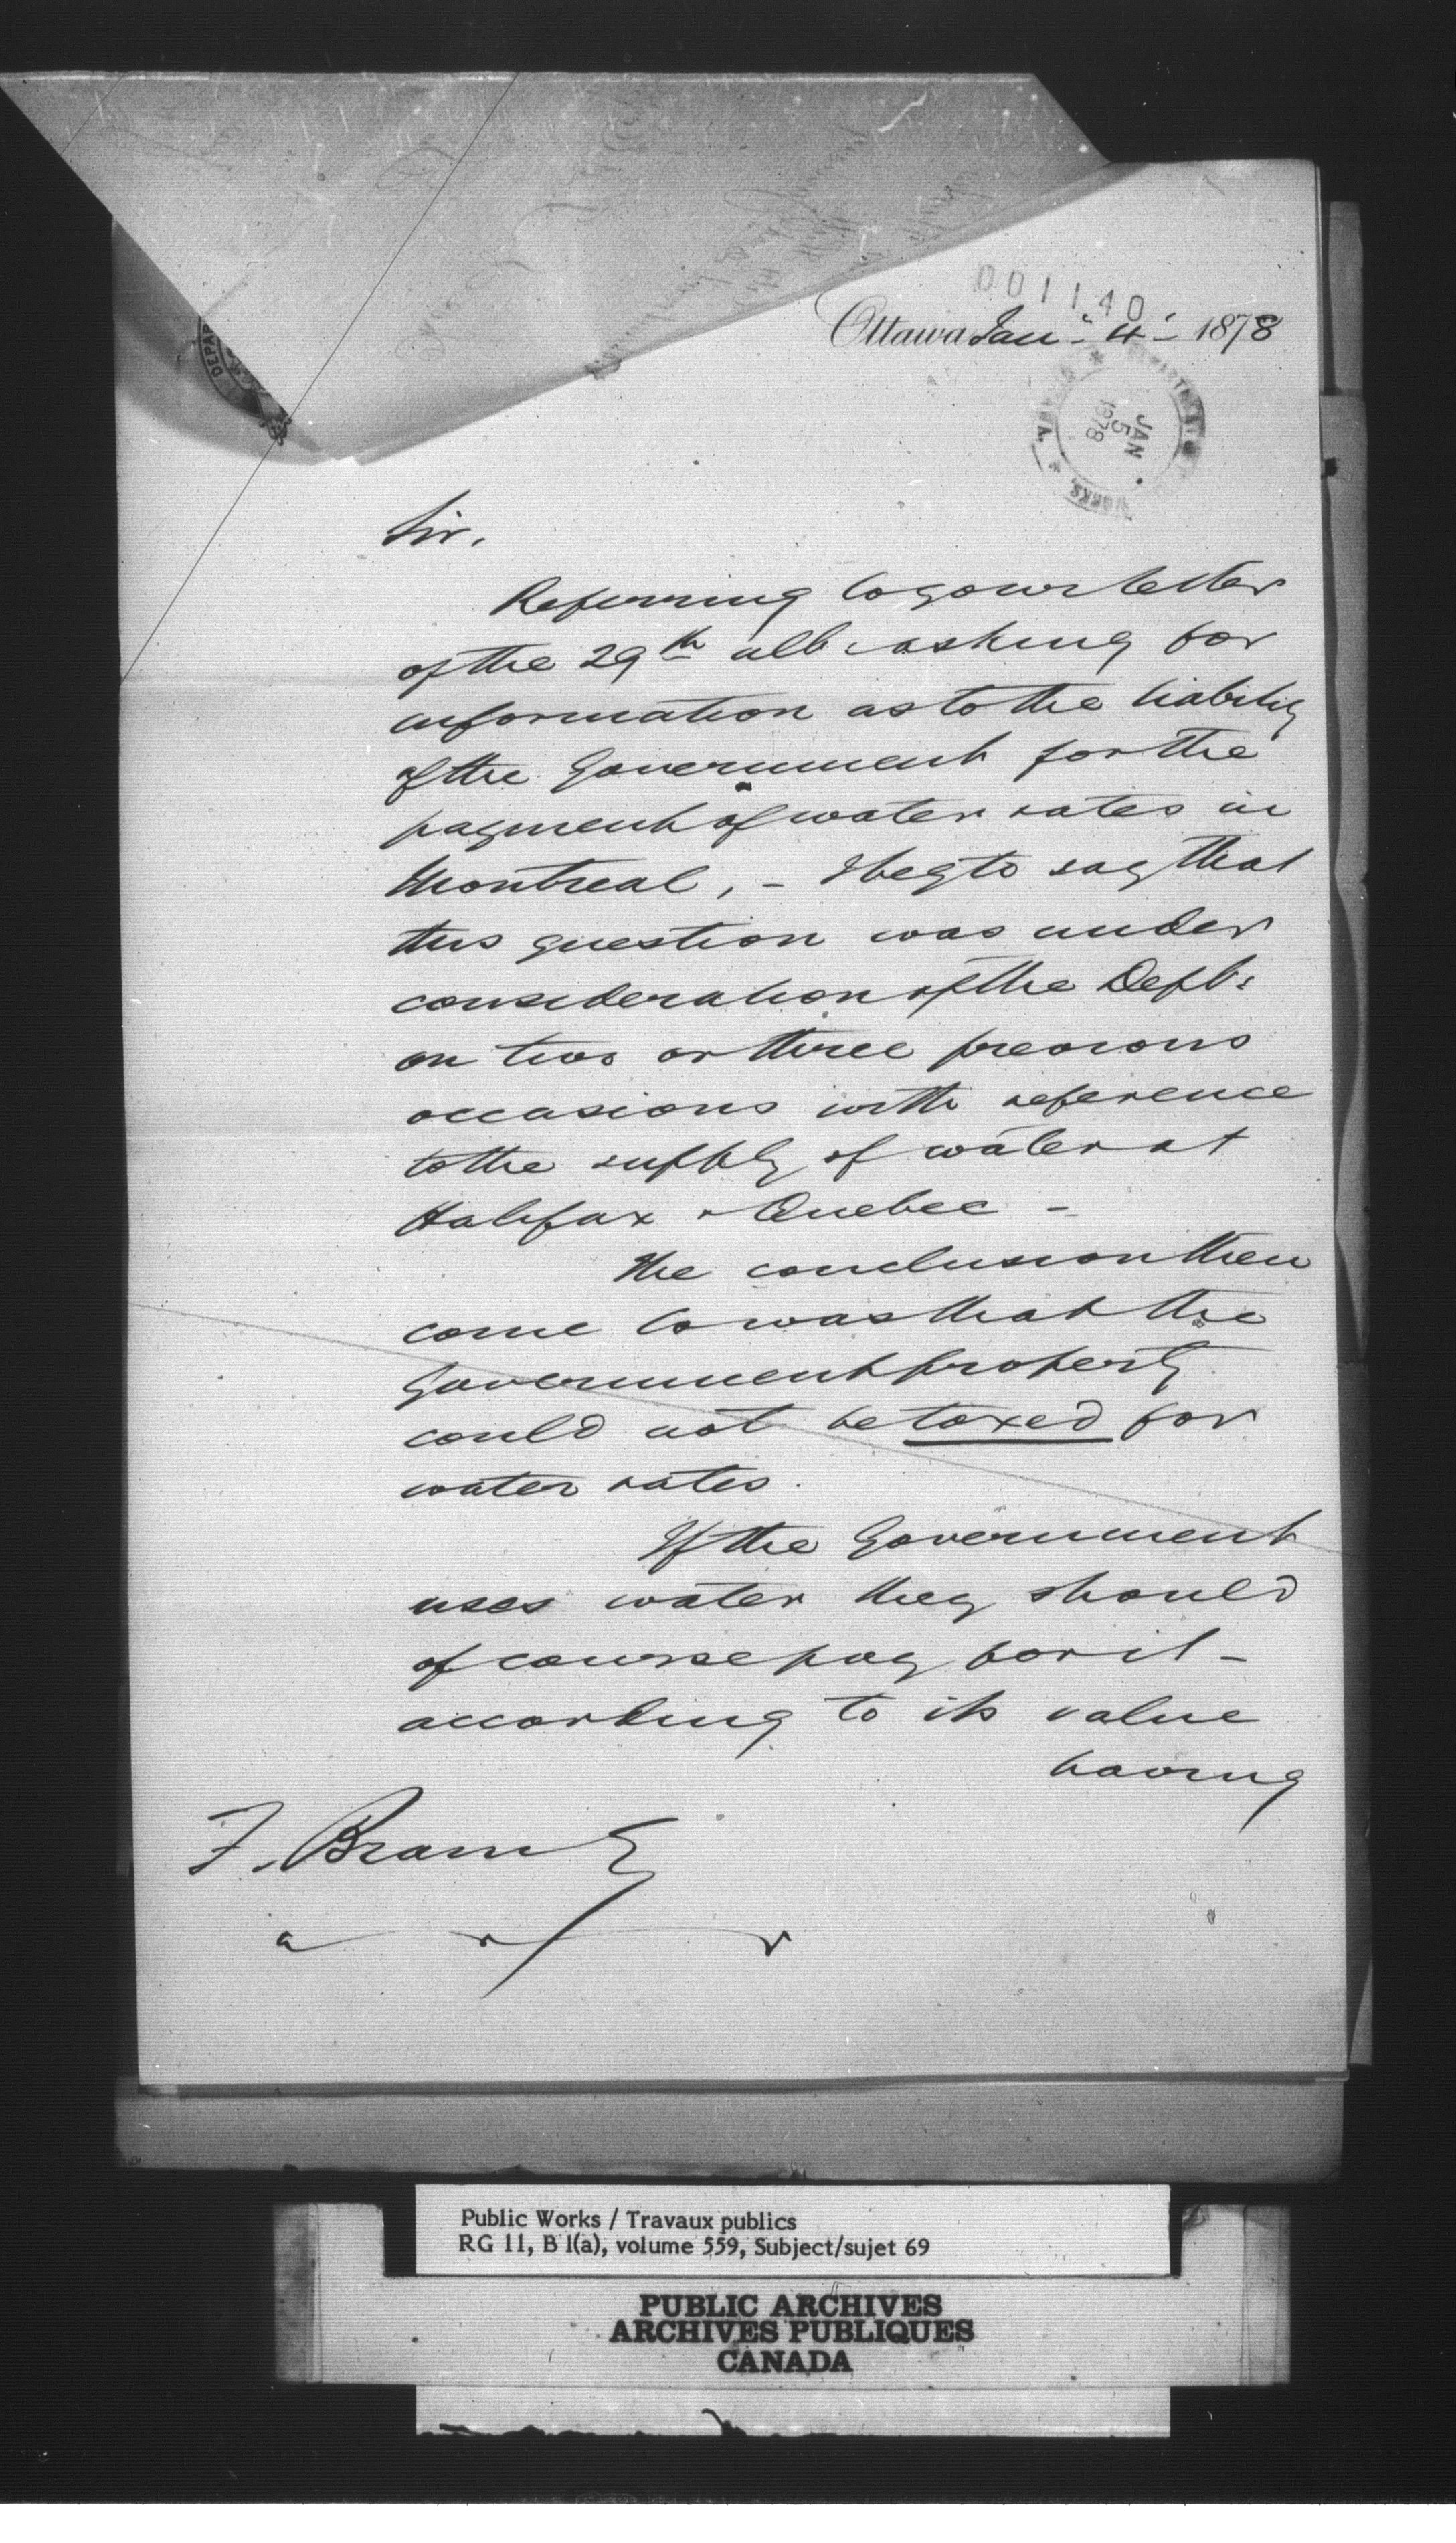 001140
Ottawa Jan 4 1878
DEPAR
DEPARTMENT WORKS, CANADA.
JAN
5
1878
Sir,
Referring to your letter
of the 29th ult asking for
information as to the liability
of the Government for the
payment of water rates in
Montreal, - I beg to say that
this question was under
consideration of the Dept:
on two or three previous
occasions with reference
to the supply of water at
Halifax & Quebec -
The conclusion then
come to was that the
Government property
could not be taxed for
water rates.
If the Government
uses water they should
of course pay for it -
according to its value
having
F. Braun Esq
Public Works / Travaux publics
RG 11, B 1(a), volume 559, Subject/sujet 69
PUBLIC ARCHIVES
ARCHIVES PUBLIQUES
CANADA